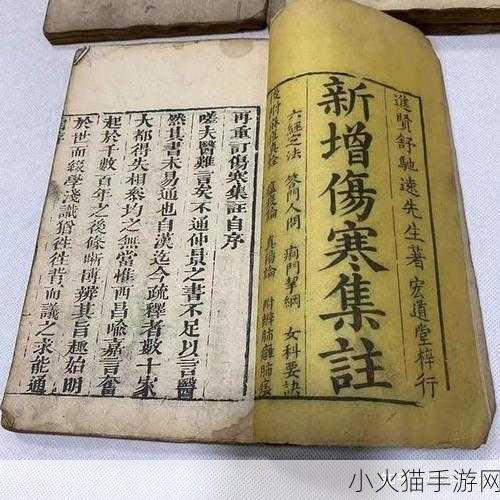 進賢舒馳遠先生著 宏道堂梓行
新增傷寒集註
六經定法 答門人問 痢門挈綱 女科要訣
附辨肺癰肺痿
再重訂傷寒集註自序
嗟夫醫難言矣不通仲景之書不足以言醫
然其書未易通也自漢迄今疏釋者數十家
大都得失相參均之無當惟西昌喻嘉言奮
起于數百年之後條晰辨其旨趣始明
於世而綴學淺識猶徃徃背而議之求能通
小火猫手游网